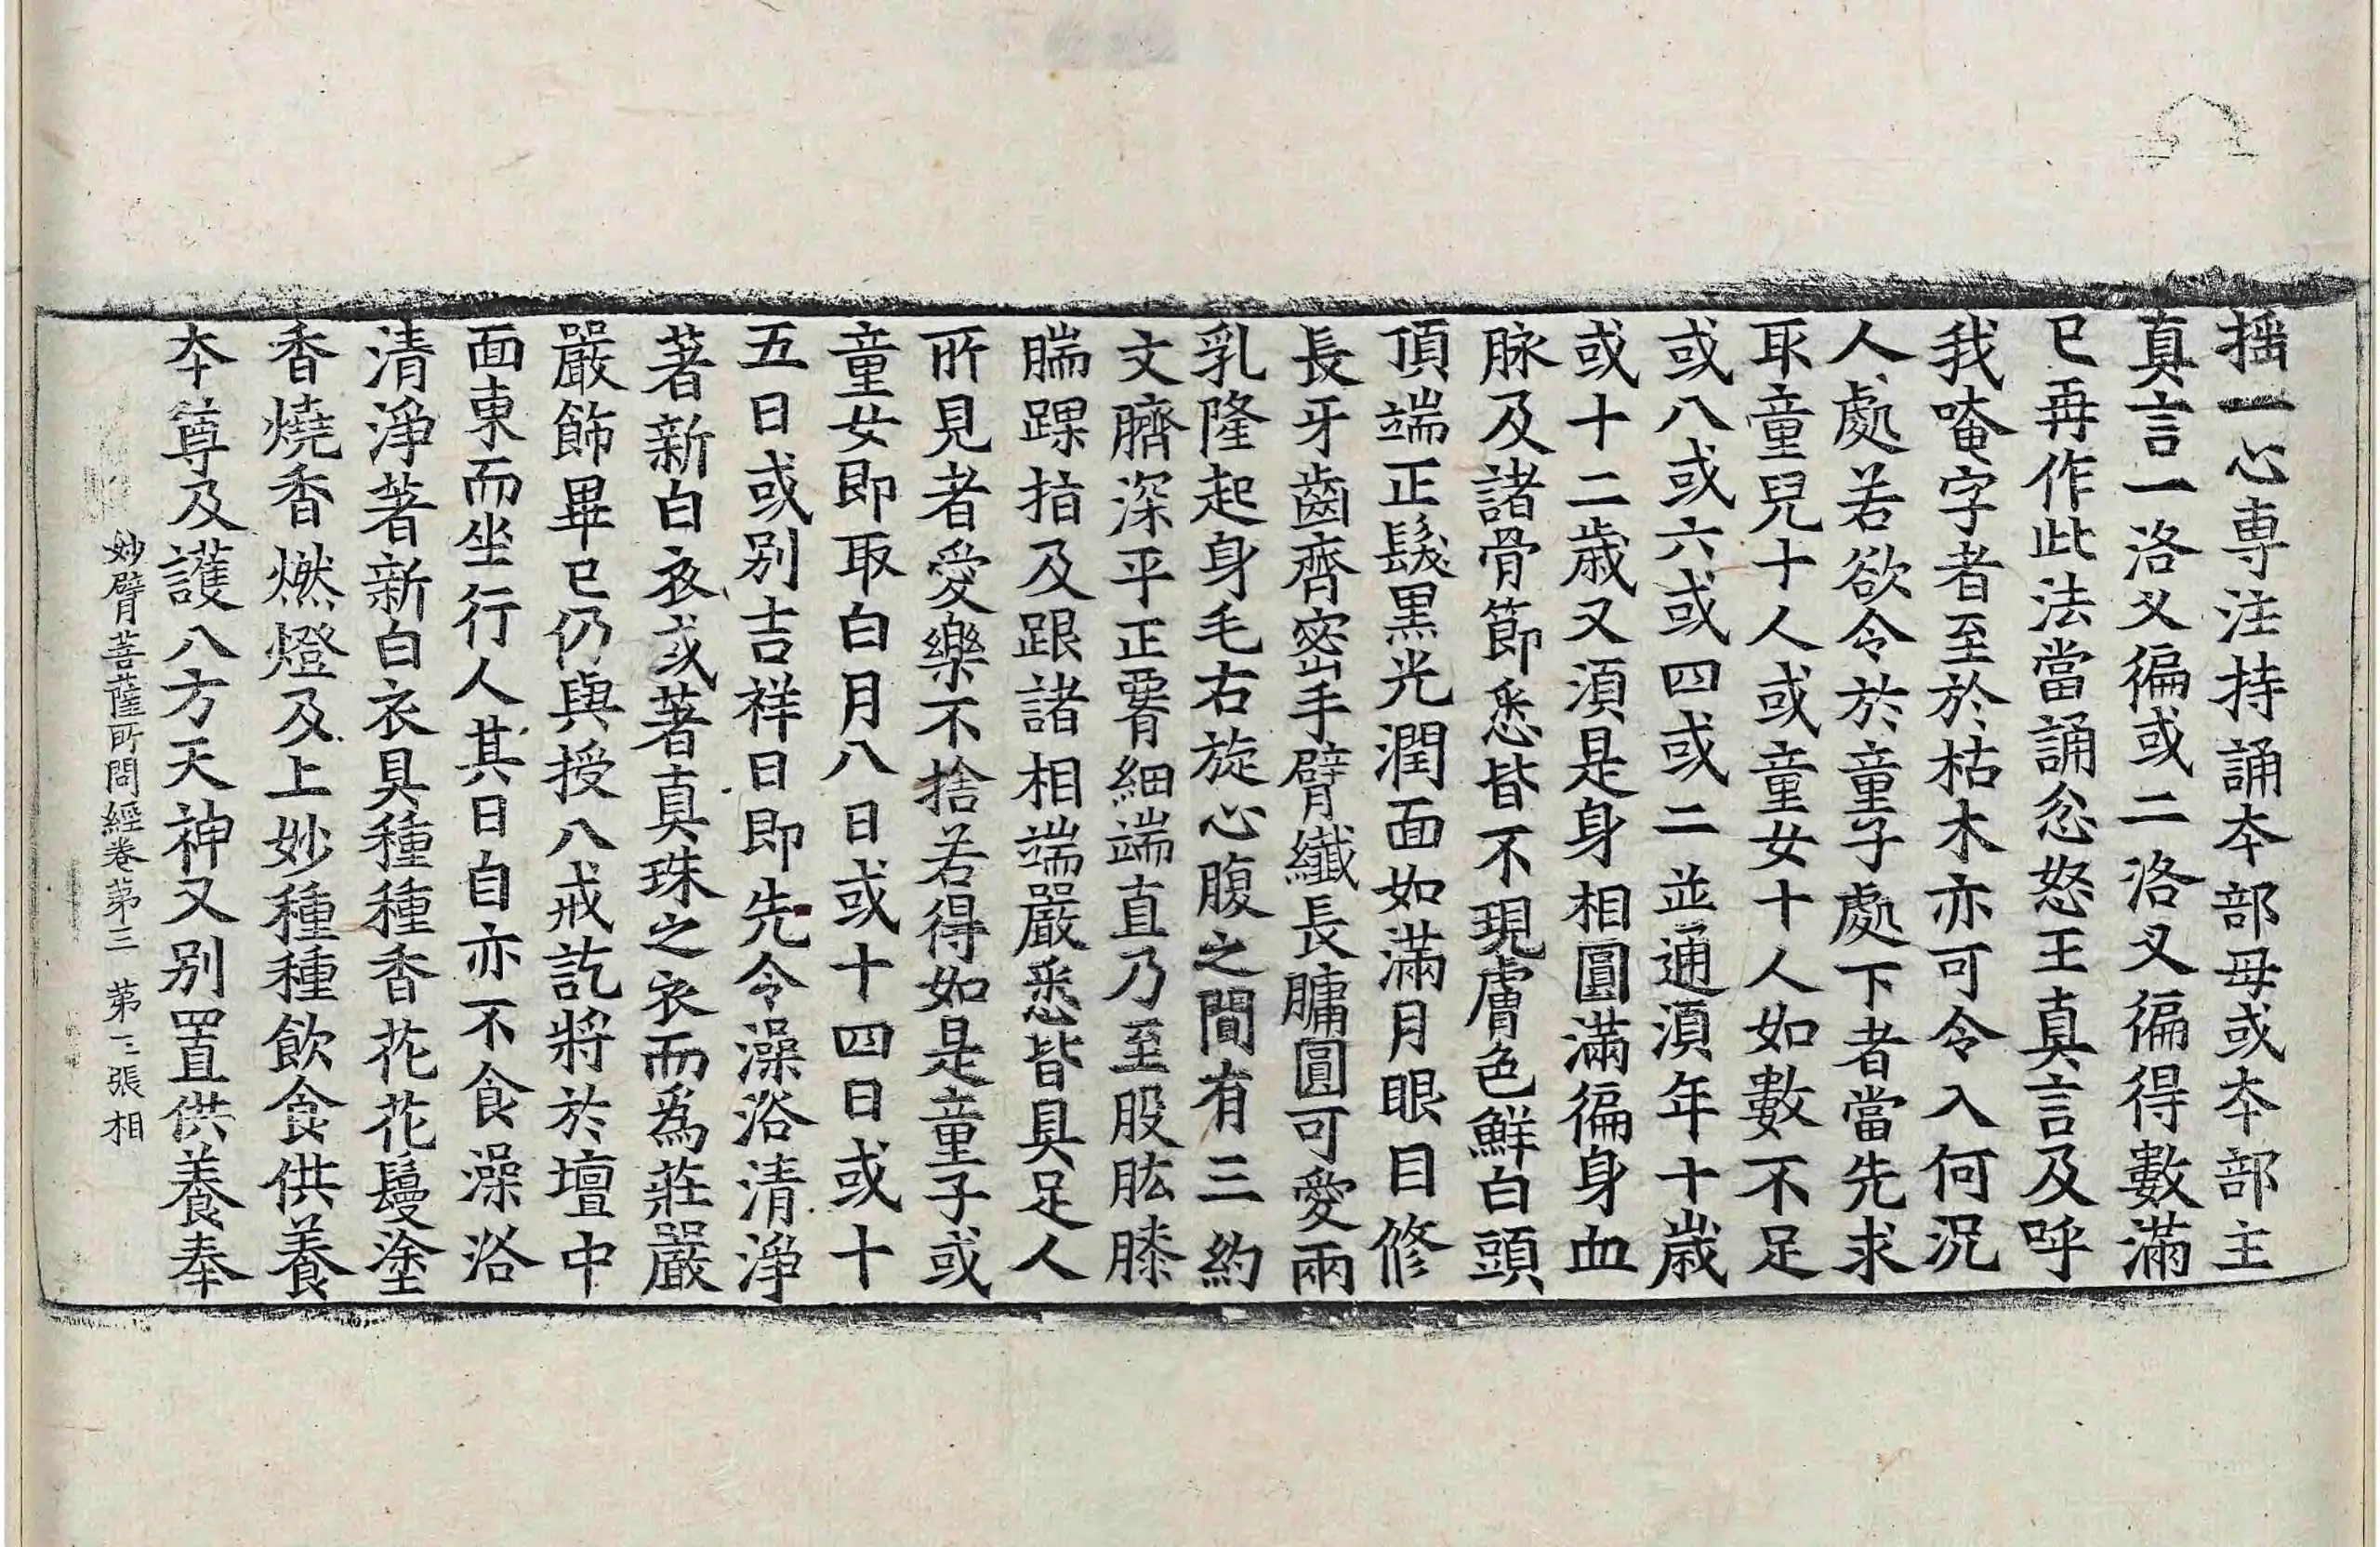 揺一心専注持誦夲部母或夲部主
真言一洛叉徧或二洛叉徧得數滿
已再作此法當誦忿怒王真言及呼
我唵字者至於枯木亦可令入何況
人處若欲令於童子處下者當先求
取童兒十人或童女十人如數不足
或八或六或四或二並通湏年十歲
或十二歲又湏是身相圓滿徧身血
脉及諸骨節悉皆不現膚色鮮白頭
頂端正髮黑光潤面如滿月眼目修
長牙齒齊密手臂纖長牗圓可愛兩
乳隆起身毛右旋心腹之間有三約
文臍深平正䙅細端直乃至股肱膝
腨踝指及跟諸相端嚴悉皆具足人
所見者愛樂不捨若得如是童子或
童女即取白月八日或十四日或十
五日或别吉祥日即先令澡浴清淨
著新白衣或著真珠之衣而為莊嚴
嚴飾畢已仍與授八戒訖將於壇中
面東而坐行人其日自亦不食澡浴
清淨著新白衣具種種香花花鬘塗
香燒香燃燈及上妙種種飲食供養
夲尊及護八方天神又别置供養奉
妙臂菩薩所問經卷第三 第三張 相